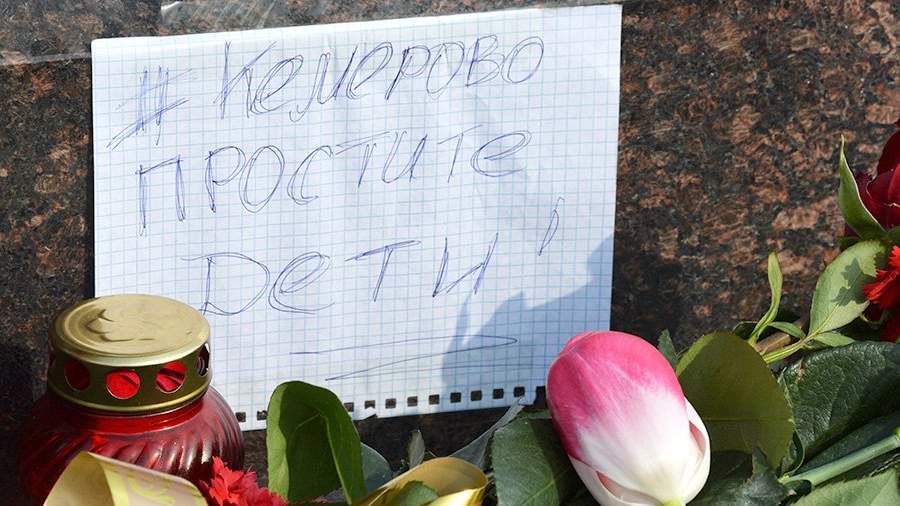 #Кемерово
ПРОСТИТЕ
Дети!